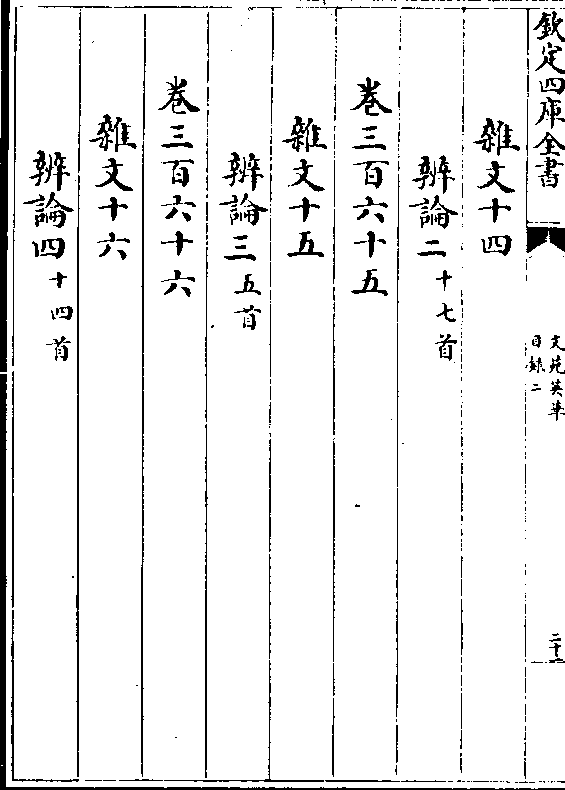 欽定四庫全書
文苑英華
目録二
二十一
雜文十四
辨論二十七首
卷三百六十五
雜文十五
辨論三五首
卷三百六十六
雜文十六
辨論四十四首